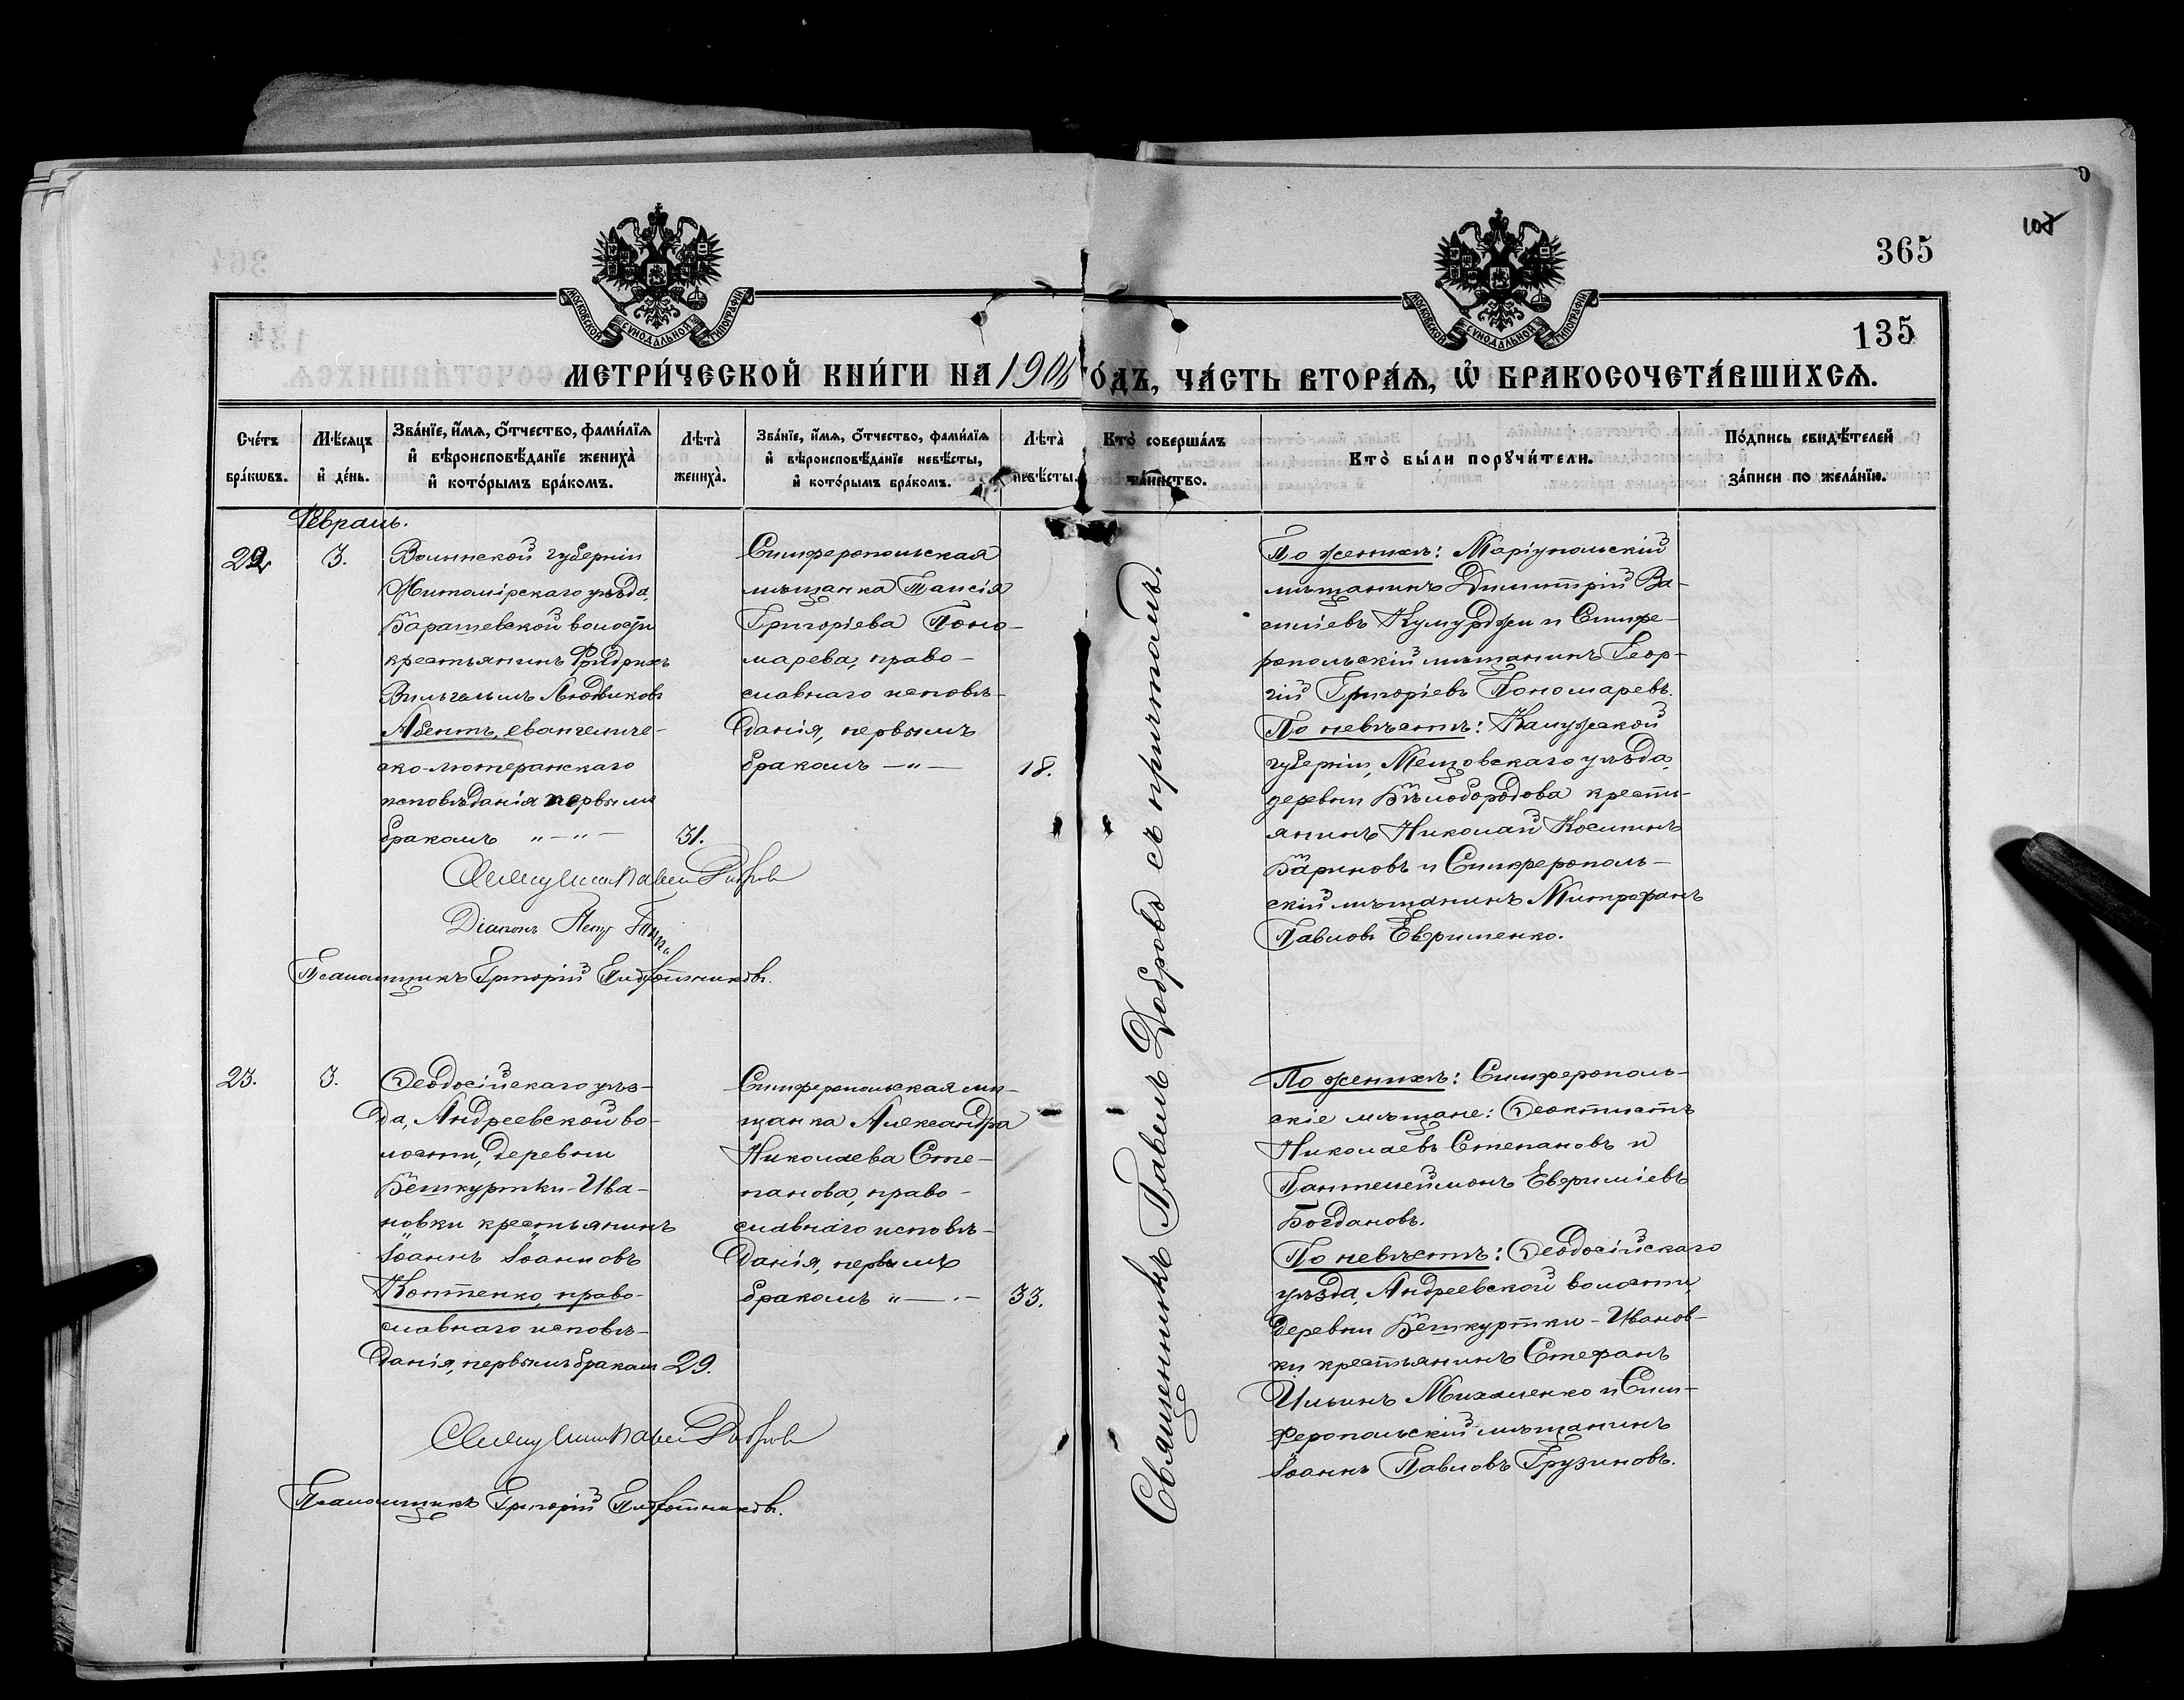 365
135
МОСКОВСКОЙ СУНОДАЛЬНОЙ ТИПОГРАФІИ
МОСКОВСКОЙ СУНОДАЛЬНОЙ ТИПОГРАФІИ
МЕТРИ́ЧЕСКОЙ КНИ́ГИ НА 1908 ГО́ДЪ, ЧА́СТЬ ВТОРА́Ѧ, Ѽ БРАКОСОЧЕТА́ВШИХСѦ.
Сче́тъ бра́кѡвъ.
Мѣ́сѧцъ и҆ де́нь.
Зва́нїе, и҆́мѧ, ѻ҆́тчество, фами́лїѧ
и҆ вѣроисповѣ́данїе жениха̀
и҆ кото́рымъ бра́комъ.
Лѣта̀ жениха̀.
Зва́нїе, и҆́мѧ, ѻ҆́тчество, фами́лїѧ
и҆ вѣроисповѣ́данїе невѣ́сты,
и҆ кото́рымъ бра́комъ.
Лѣта̀ невѣ́сты.
Кто̀ соверша́лъ та́инство.
Кто̀ бы́ли порꙋчи́тели.
По́дпись свидѣ́телей
за́писи по жела́нїю.
Февраль.
22
3.
Волынской губерніи
Житомірскаго уѣзда,
Барашевской волости
крестьянинъ Фридрихъ
Вильгельмъ Людвиковъ
Абентъ, евангеличе-
ско-лютеранскаго
исповѣданія первымъ
бракомъ „—„—
31.
Симферопольская
мѣщанка Таисія
Григоріева Поно-
марева, право-
славнаго исповѣ-
данія, первымъ
бракомъ —„—
18.
Священникъ Павелъ Добровъ съ причтомъ.
По женихѣ: Маріупольскій
мѣщанинъ Димитрій Ва-
силіевъ Кумурджи и Симфе-
ропольскій мѣщанинъ Геор-
гій Григоріевъ Пономаревъ.
По невѣстѣ: Калужской
губерніи, Мещовскаго уѣзда,
деревни Бѣлобородова крестъ-
янинъ Николай Косминъ
Бариновъ и Симферополь-
скій мѣщанинъ Митрофанъ
Павловъ Евфименко.
Священникъ Павелъ Добровъ
Діаконъ Петръ
Псаломщикъ Григорій
23.
3.
Ѳеодосійскаго уѣз-
да, Андреевской во-
лости, деревни
Бешкуртки-Ива-
новки крестьянинъ
Іоаннъ Іоанновъ
Коттенко, право-
славнаго исповѣ-
данія, первымъ бракомъ
29.
Симферопольская мѣ-
щанка Александра
Николаева Сте-
панова, право-
славнаго исповѣ-
данія, первымъ
бракомъ „—„—
33.
По женихѣ: Симферополь-
скіе мѣщане: Ѳеоктистъ
Николаевъ Степановъ и
Пантелеймонъ Евфиміевъ
Богдановъ.
По невѣстѣ: Ѳеодосійскаго
уѣзда, Андреевской волости,
деревни Бешкуртки-Иванов-
ки крестьянинъ Стефанъ
Ильинъ Михаленко и Сим-
феропольскій мѣщанинъ
Іоаннъ Павловъ Грузиновъ.
Священникъ Павелъ Добровъ
Псаломщикъ Григорій